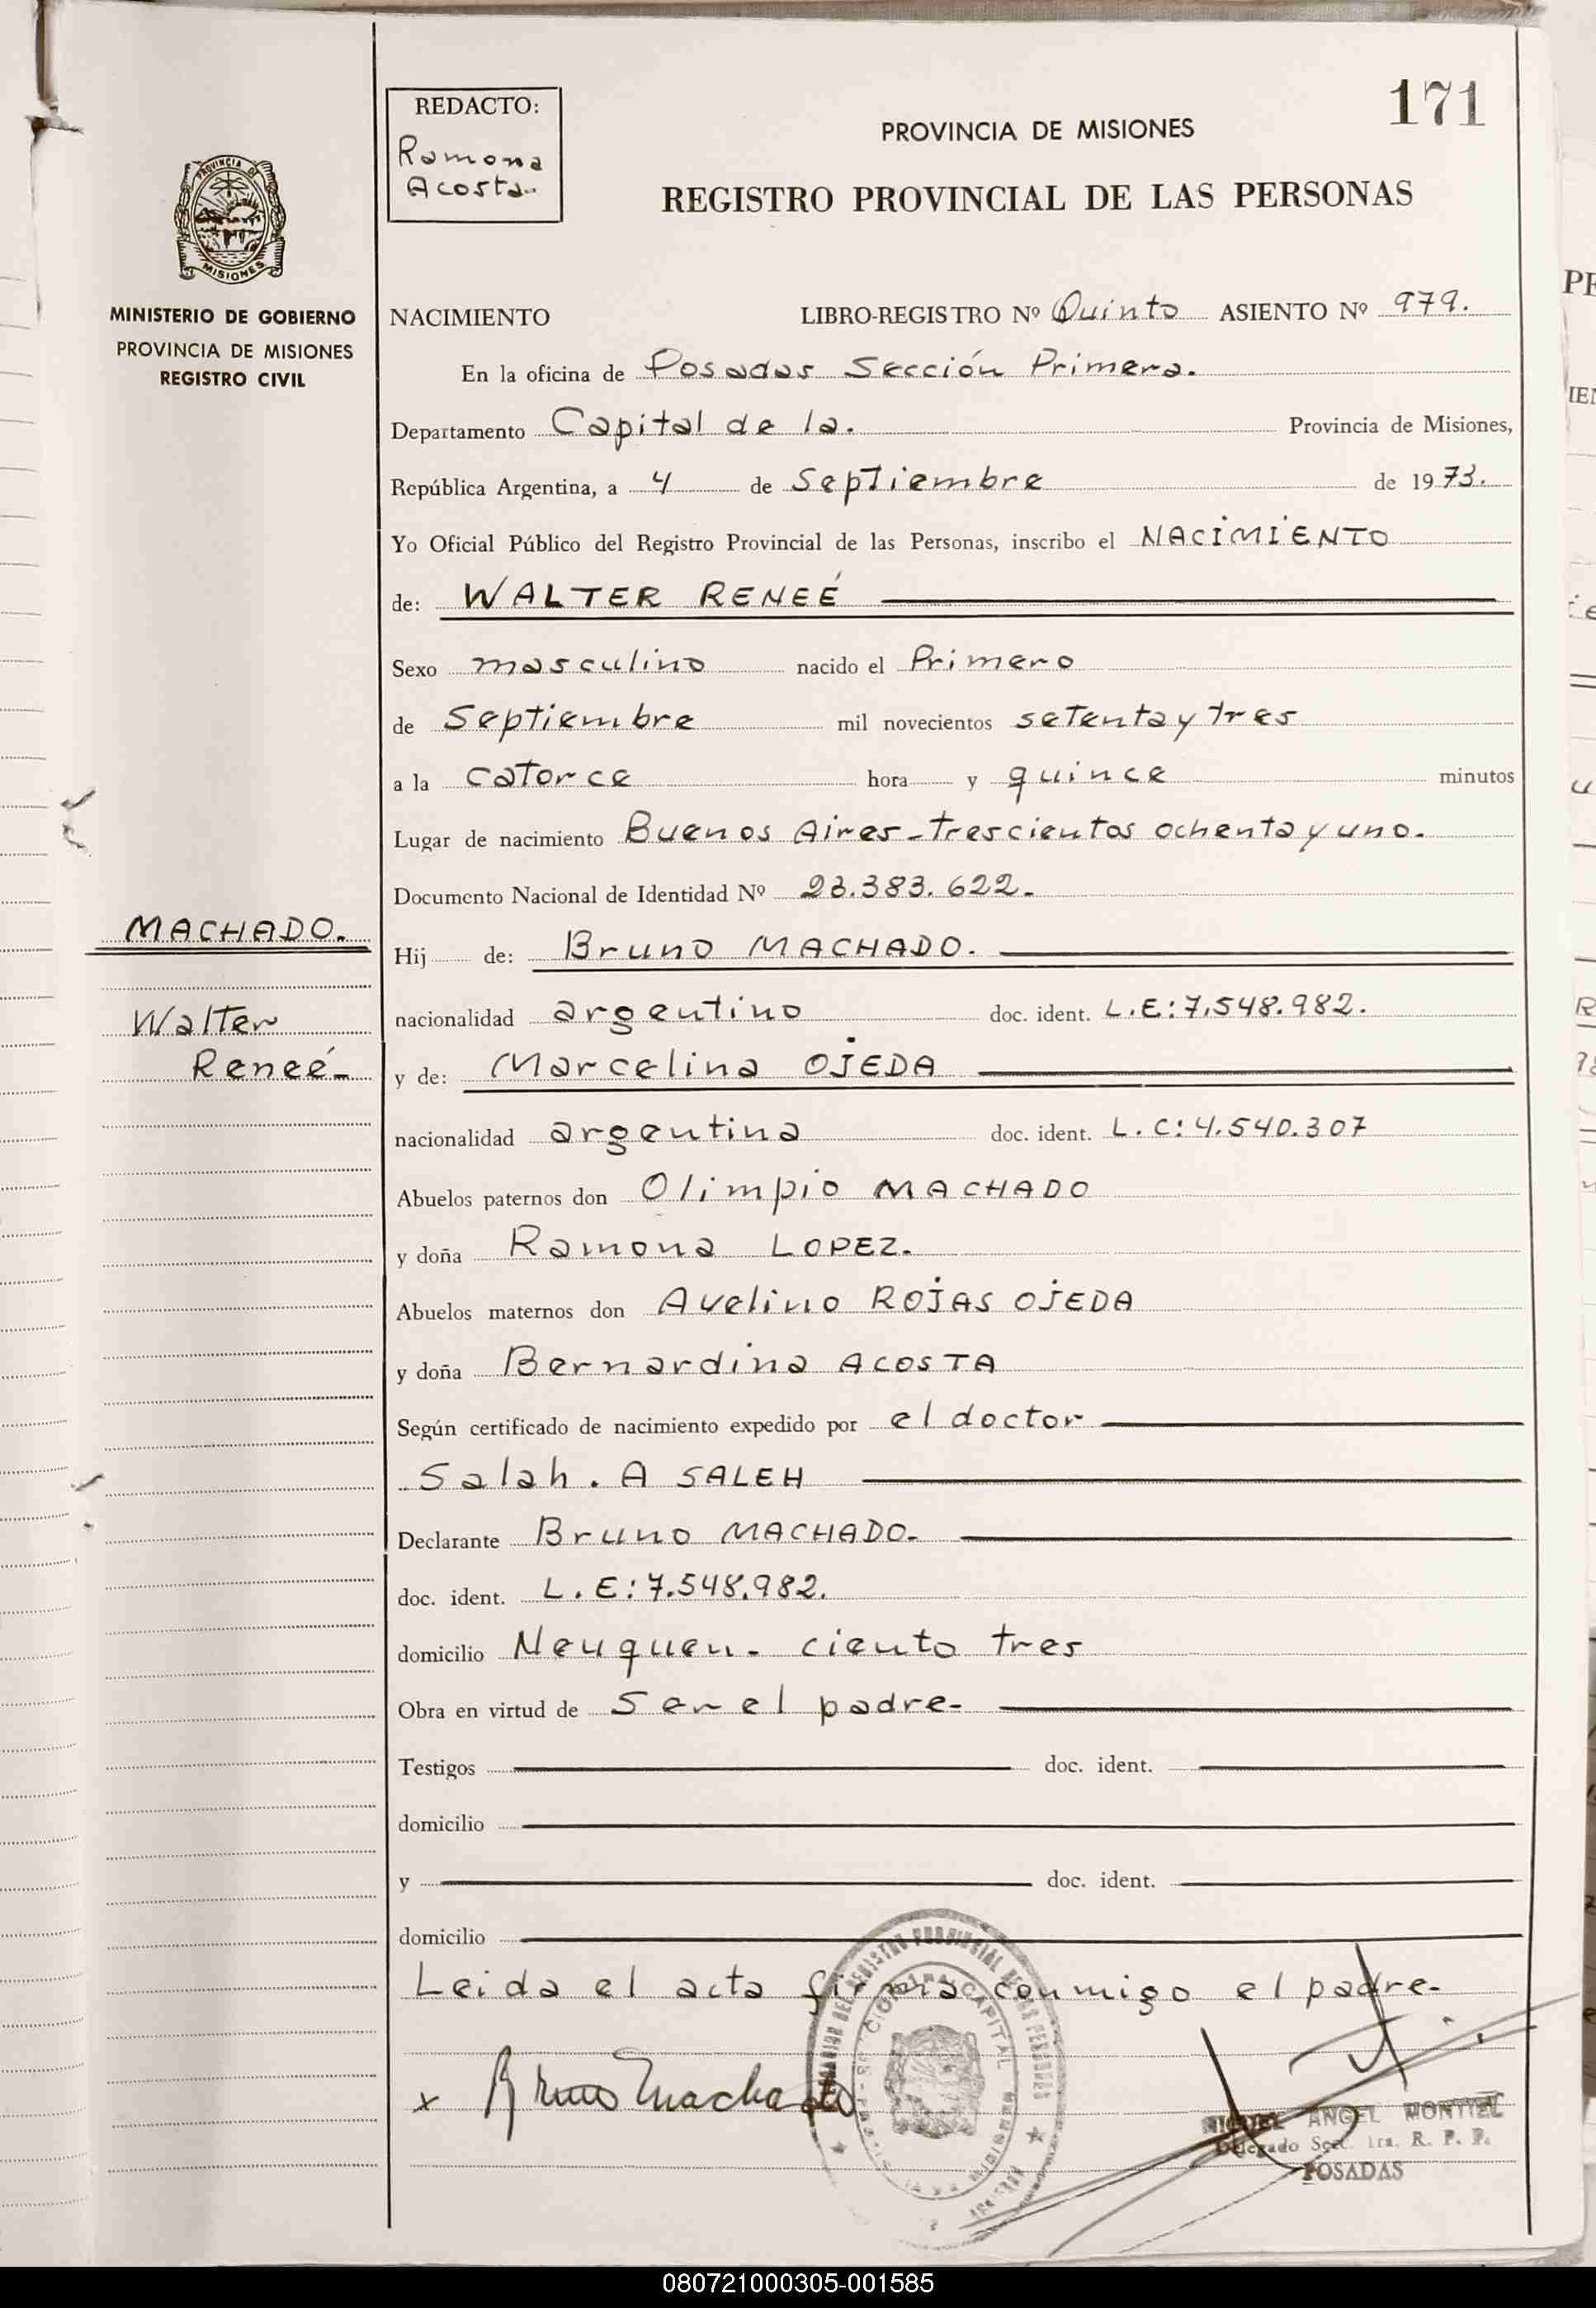 171
REDACTO:
Ramona
Acosta.
PROVINCIA DE MISIONES
REGISTRO PROVINCIAL DE LAS PERSONAS
PROVINCIA DE
MISIONES
MINISTERIO DE GOBIERNO
PROVINCIA DE MISIONES
REGISTRO CIVIL
NACIMIENTO LIBRO-REGISTRO Nº Quinto ASIENTO Nº 979.
En la oficina de Posadas Sección Primera.
Departamento Capital de la. Provincia de Misiones,
República Argentina, a 4 de Septiembre de 1973.
Yo Oficial Público del Registro Provincial de las Personas, inscribo el NACIMIENTO
de: WALTER RENEÉ
Sexo masculino nacido el Primero
de Septiembre mil novecientos setenta y tres
a la catorce hora y quince minutos
Lugar de nacimiento Buenos Aires-trescientos ochenta y uno.
Documento Nacional de Identidad Nº 23.383.622.
MACHADO.
Hij de: Bruno MACHADO.
Walter
Reneé-
nacionalidad argentino doc. ident. L.E:7.548.982.
y de: Marcelina OJEDA
nacionalidad argentina doc. ident. L.C:4.540.307
Abuelos paternos don Olimpio MACHADO
y doña Ramona LOPEZ.
Abuelos maternos don Avelino ROJAS OJEDA
y doña Bernardina ACOSTA
Según certificado de nacimiento expedido por el doctor
Salah. A SALEH
Declarante Bruno MACHADO.
doc. ident. L.E:7.548.982.
domicilio Neuquen- ciento tres
Obra en virtud de Ser el padre-
Testigos doc. ident.
domicilio
y doc. ident.
domicilio
Leida el acta firma conmigo el padre-
x Bruno Machado
MIGUEL ANGEL MONTIEL
Delegado Secc. 1ra. R. P. P.
POSADAS
080721000305-001585